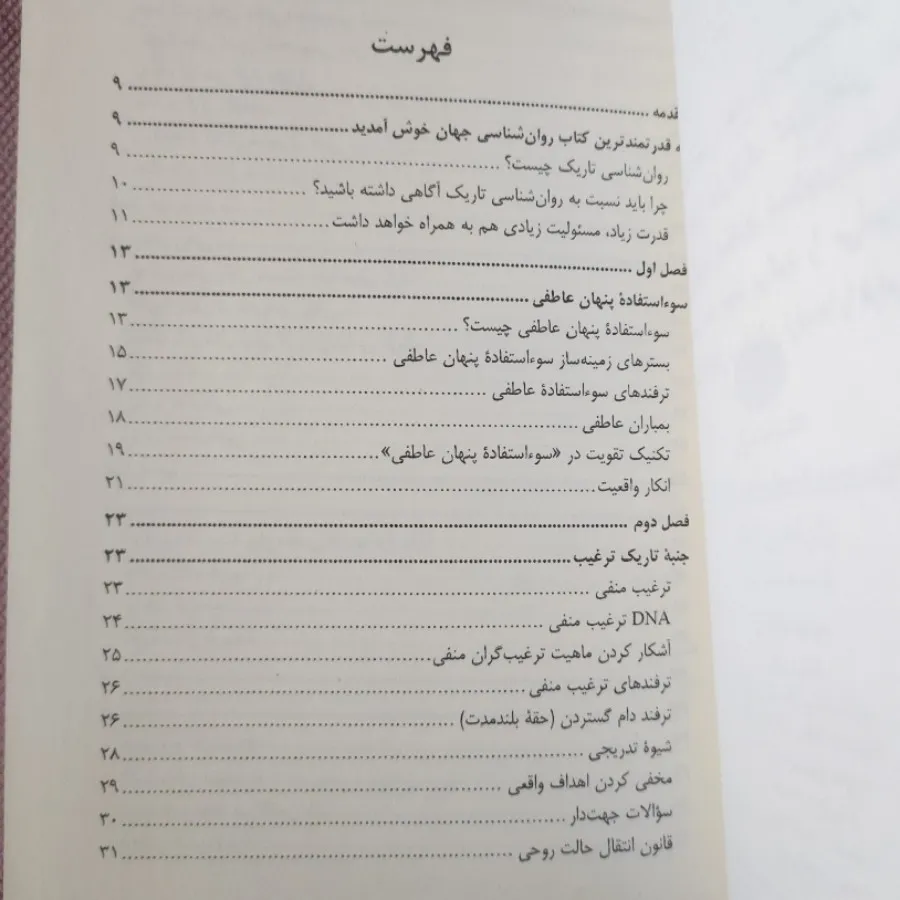 فهرست
قدمه ........ ۹
ه قدرتمندترین کتاب روان‌شناسی جهان خوش آمدید ........ ۹
روان‌شناسی تاریک چیست؟ ........ ۹
چرا باید نسبت به روان‌شناسی تاریک آگاهی داشته باشید؟ ........ ۱۰
قدرت زیاد، مسئولیت زیادی هم به همراه خواهد داشت ........ ۱۱
فصل اول ........ ۱۳
سوءاستفادهٔ پنهان عاطفی ........ ۱۳
سوءاستفادهٔ پنهان عاطفی چیست؟ ........ ۱۳
بسترهای زمینه‌ساز سوءاستفادهٔ پنهان عاطفی ........ ۱۵
ترفندهای سوءاستفادهٔ عاطفی ........ ۱۷
بمباران عاطفی ........ ۱۸
تکنیک تقویت در «سوءاستفادهٔ پنهان عاطفی» ........ ۱۹
انکار واقعیت ........ ۲۱
فصل دوم ........ ۲۳
جنبهٔ تاریک ترغیب ........ ۲۳
ترغیب منفی ........ ۲۳
DNA ترغیب منفی ........ ۲۴
آشکار کردن ماهیت ترغیب‌گران منفی ........ ۲۵
ترفندهای ترغیب منفی ........ ۲۶
ترفند دام گستردن (حقهٔ بلندمدت) ........ ۲۶
شیوهٔ تدریجی ........ ۲۸
مخفی کردن اهداف واقعی ........ ۲۹
سؤالات جهت‌دار ........ ۳۰
قانون انتقال حالت روحی ........ ۳۱